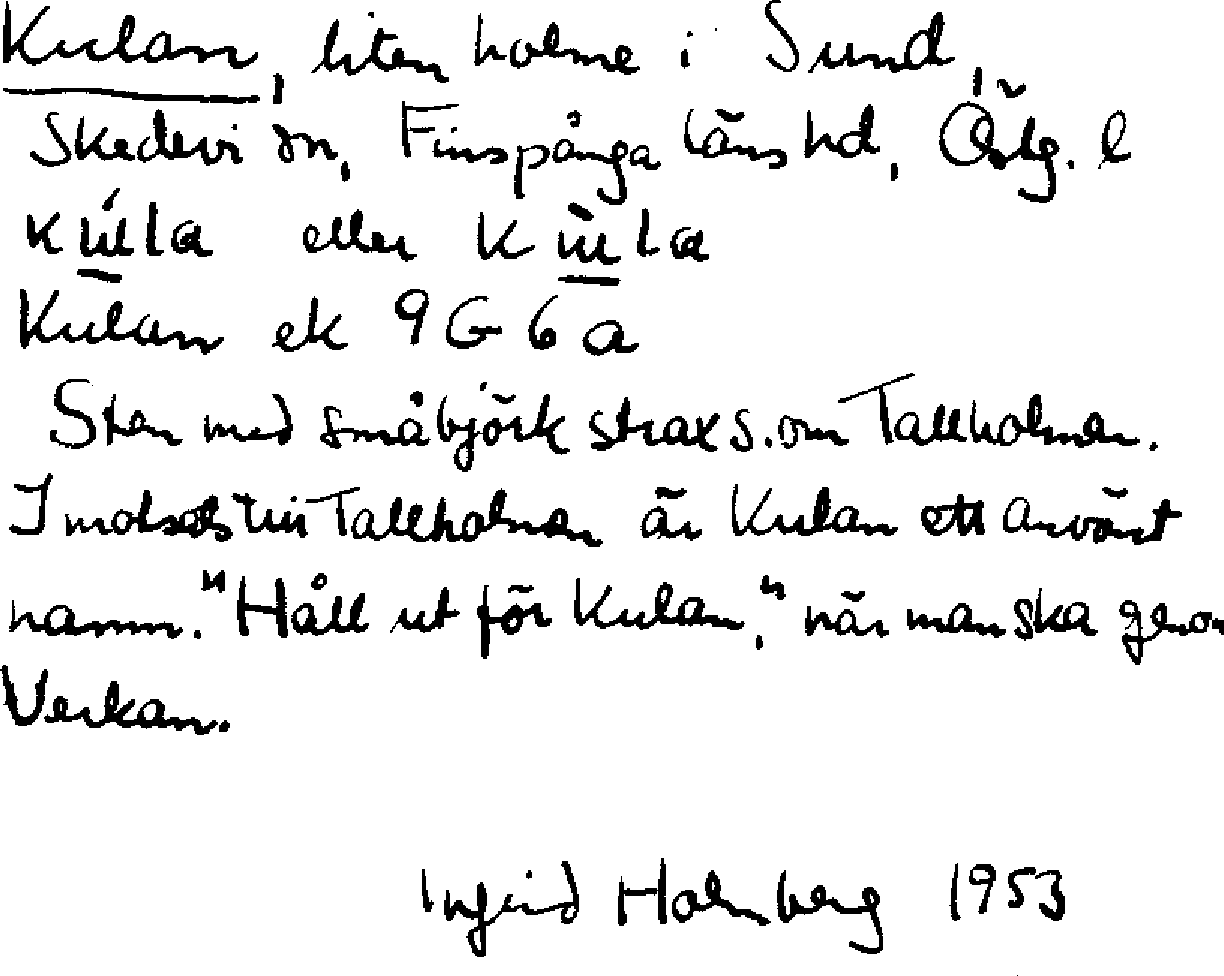 Kulan, liten holme i Sund,
Skedevi sn, Finspånga läns hd, Östg. l
kúla eller kùla
Kulan ek 9 G 6 a
Sten med småbjörk strax s. om Tallholmen.
I motsats till Tallholmen är Kulan ett använt
namn. "Håll ut för Kulan," när man ska genom
Verkan.
Ingrid Holmberg 1953